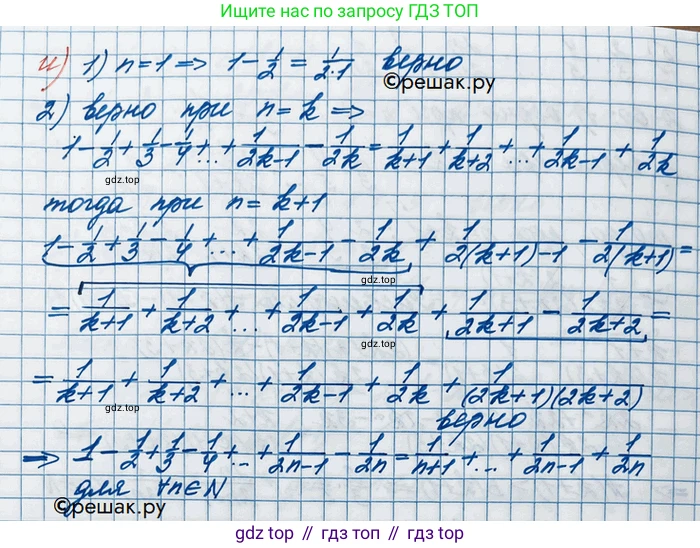 Ищите нас в поисковиках
по запросу ГДЗ ТОП
4) 1) n=1 => 1 - 1/2 = 1/(2·1) верно
©решак.ру
2) верно при n=k =>
1 - 1/2 + 1/3 - 1/4 + ... + 1/(2k-1) - 1/(2k) = 1/(k+1) + 1/(k+2) + ... + 1/(2k-1) + 1/(2k)
gdz.top
тогда при n=k+1
1 - 1/2 + 1/3 - 1/4 + ... + 1/(2k-1) - 1/(2k) + 1/(2(k+1)-1) - 1/(2(k+1)) =
gdz.top
= 1/(k+1) + 1/(k+2) + ... + 1/(2k-1) + 1/(2k) + 1/(2k+1) - 1/(2k+2) =
gdz.top
= 1/(k+1) + 1/(k+2) + ... + 1/(2k-1) + 1/(2k) + 1/((2k+1)(2k+2))
верно
=> 1 - 1/2 + 1/3 - 1/4 + ... + 1/(2n-1) - 1/(2n) = 1/(n+1) + ... + 1/(2n-1) + 1/(2n)
gdz.top
для ∀n∈N
©решак.ру
gdz top // гдз топ // gdz.top